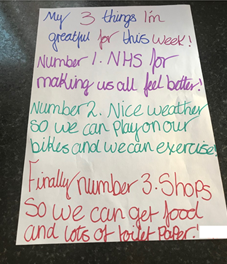 My 3 things I'm
greatful for this week!
Number 1. NHS for
making us all feel better!
Number 2. Nice weather
so we can play on our
bikes and we can exercise
Finally number 3. Shops
So we can get food
and lots of toilet paper!